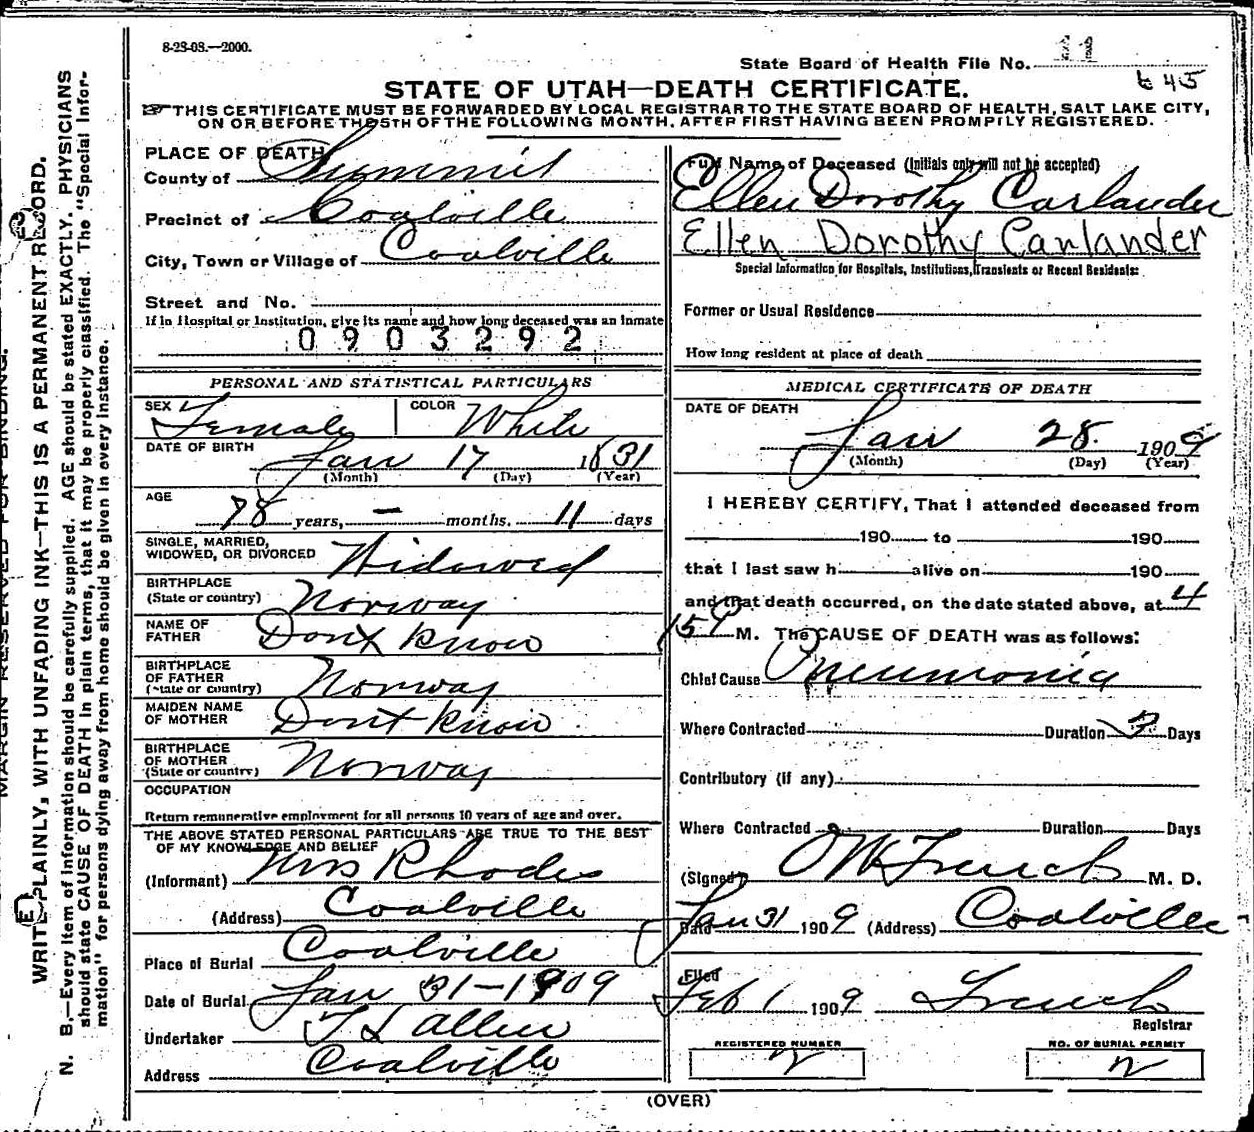 8-23-08.—2000.
State Board of Health File No. 11
645
STATE OF UTAH—DEATH CERTIFICATE.
THIS CERTIFICATE MUST BE FORWARDED BY LOCAL REGISTRAR TO THE STATE BOARD OF HEALTH, SALT LAKE CITY,
ON OR BEFORE THE 5TH OF THE FOLLOWING MONTH, AFTER FIRST HAVING BEEN PROMPILY REGISTERED.
PLACE OF DEATH
County of Summit
Precinct of Coalville
City, Town or Village of Coalville
Street and No.
If in Hospital or Institution, give its name and how long deceased was an inmate
0903292
PERSONAL AND STATISTICAL PARTICULARS
SEX Female COLOR White
DATE OF BIRTH Jan 17 1831
(Month) (Day) (Year)
AGE
78 years, — months. 11 days
SINGLE, MARRIED,
WIDOWED, OR DIVORCED Widowed
BIRTHPLACE
(State or country) Norway
NAME OF
FATHER Dont Know
BIRTHPLACE
OF FATHER
(State or country) Norway
MAIDEN NAME
OF MOTHER Dont Know
BIRTHPLACE
OF MOTHER
(State or country) Norway
OCCUPATION
Return remunerative employment for all persons 10 years of age and over.
THE ABOVE STATED PERSONAL PARTICULARS ARE TRUE TO THE BEST
OF MY KNOWLEDGE AND BELIEF
(Informant) Mrs Rhodes
(Address) Coalville
Place of Burial Coalville
Date of Burial Jan 31-1909
Undertaker T L Allen
Address Coalville
Full Name of Deceased (Initials only will not be accepted)
Ellen Dorothy Carlander
Ellen Dorothy Carlander
Special Information for Hospitals, Institutions, Transients or Recent Residents:
Former or Usual Residence
How long resident at place of death
MEDICAL CERTIFICATE OF DEATH
DATE OF DEATH
Jan 28 1909
(Month) (Day) (Year)
I HEREBY CERTIFY, That I attended deceased from
190 to 190
that I last saw h alive on 190
and that death occurred, on the date stated above, at 4
M. The CAUSE OF DEATH was as follows:
Chief Cause Pneumonia
Where Contracted Duration 7 Days
Contributory (if any)
Where Contracted Duration Days
(Signed) French M. D.
Date Jan 31 1909 (Address) Coalville
Filed
Feb 1 1909 French
Registrar
REGISTERED NUMBER
2
NO. OF BURIAL PERMIT
2
(OVER)
MARGIN RESERVED FOR BINDING.
WRITE PLAINLY, WITH UNFADING INK—THIS IS A PERMANENT RECORD.
N. B.—Every item of information should be carefully supplied. AGE should be stated EXACTLY. PHYSICIANS
should state CAUSE OF DEATH in plain terms, that it may be properly classified. The "Special Infor-
mation" for persons dying away from home should be given in every instance.